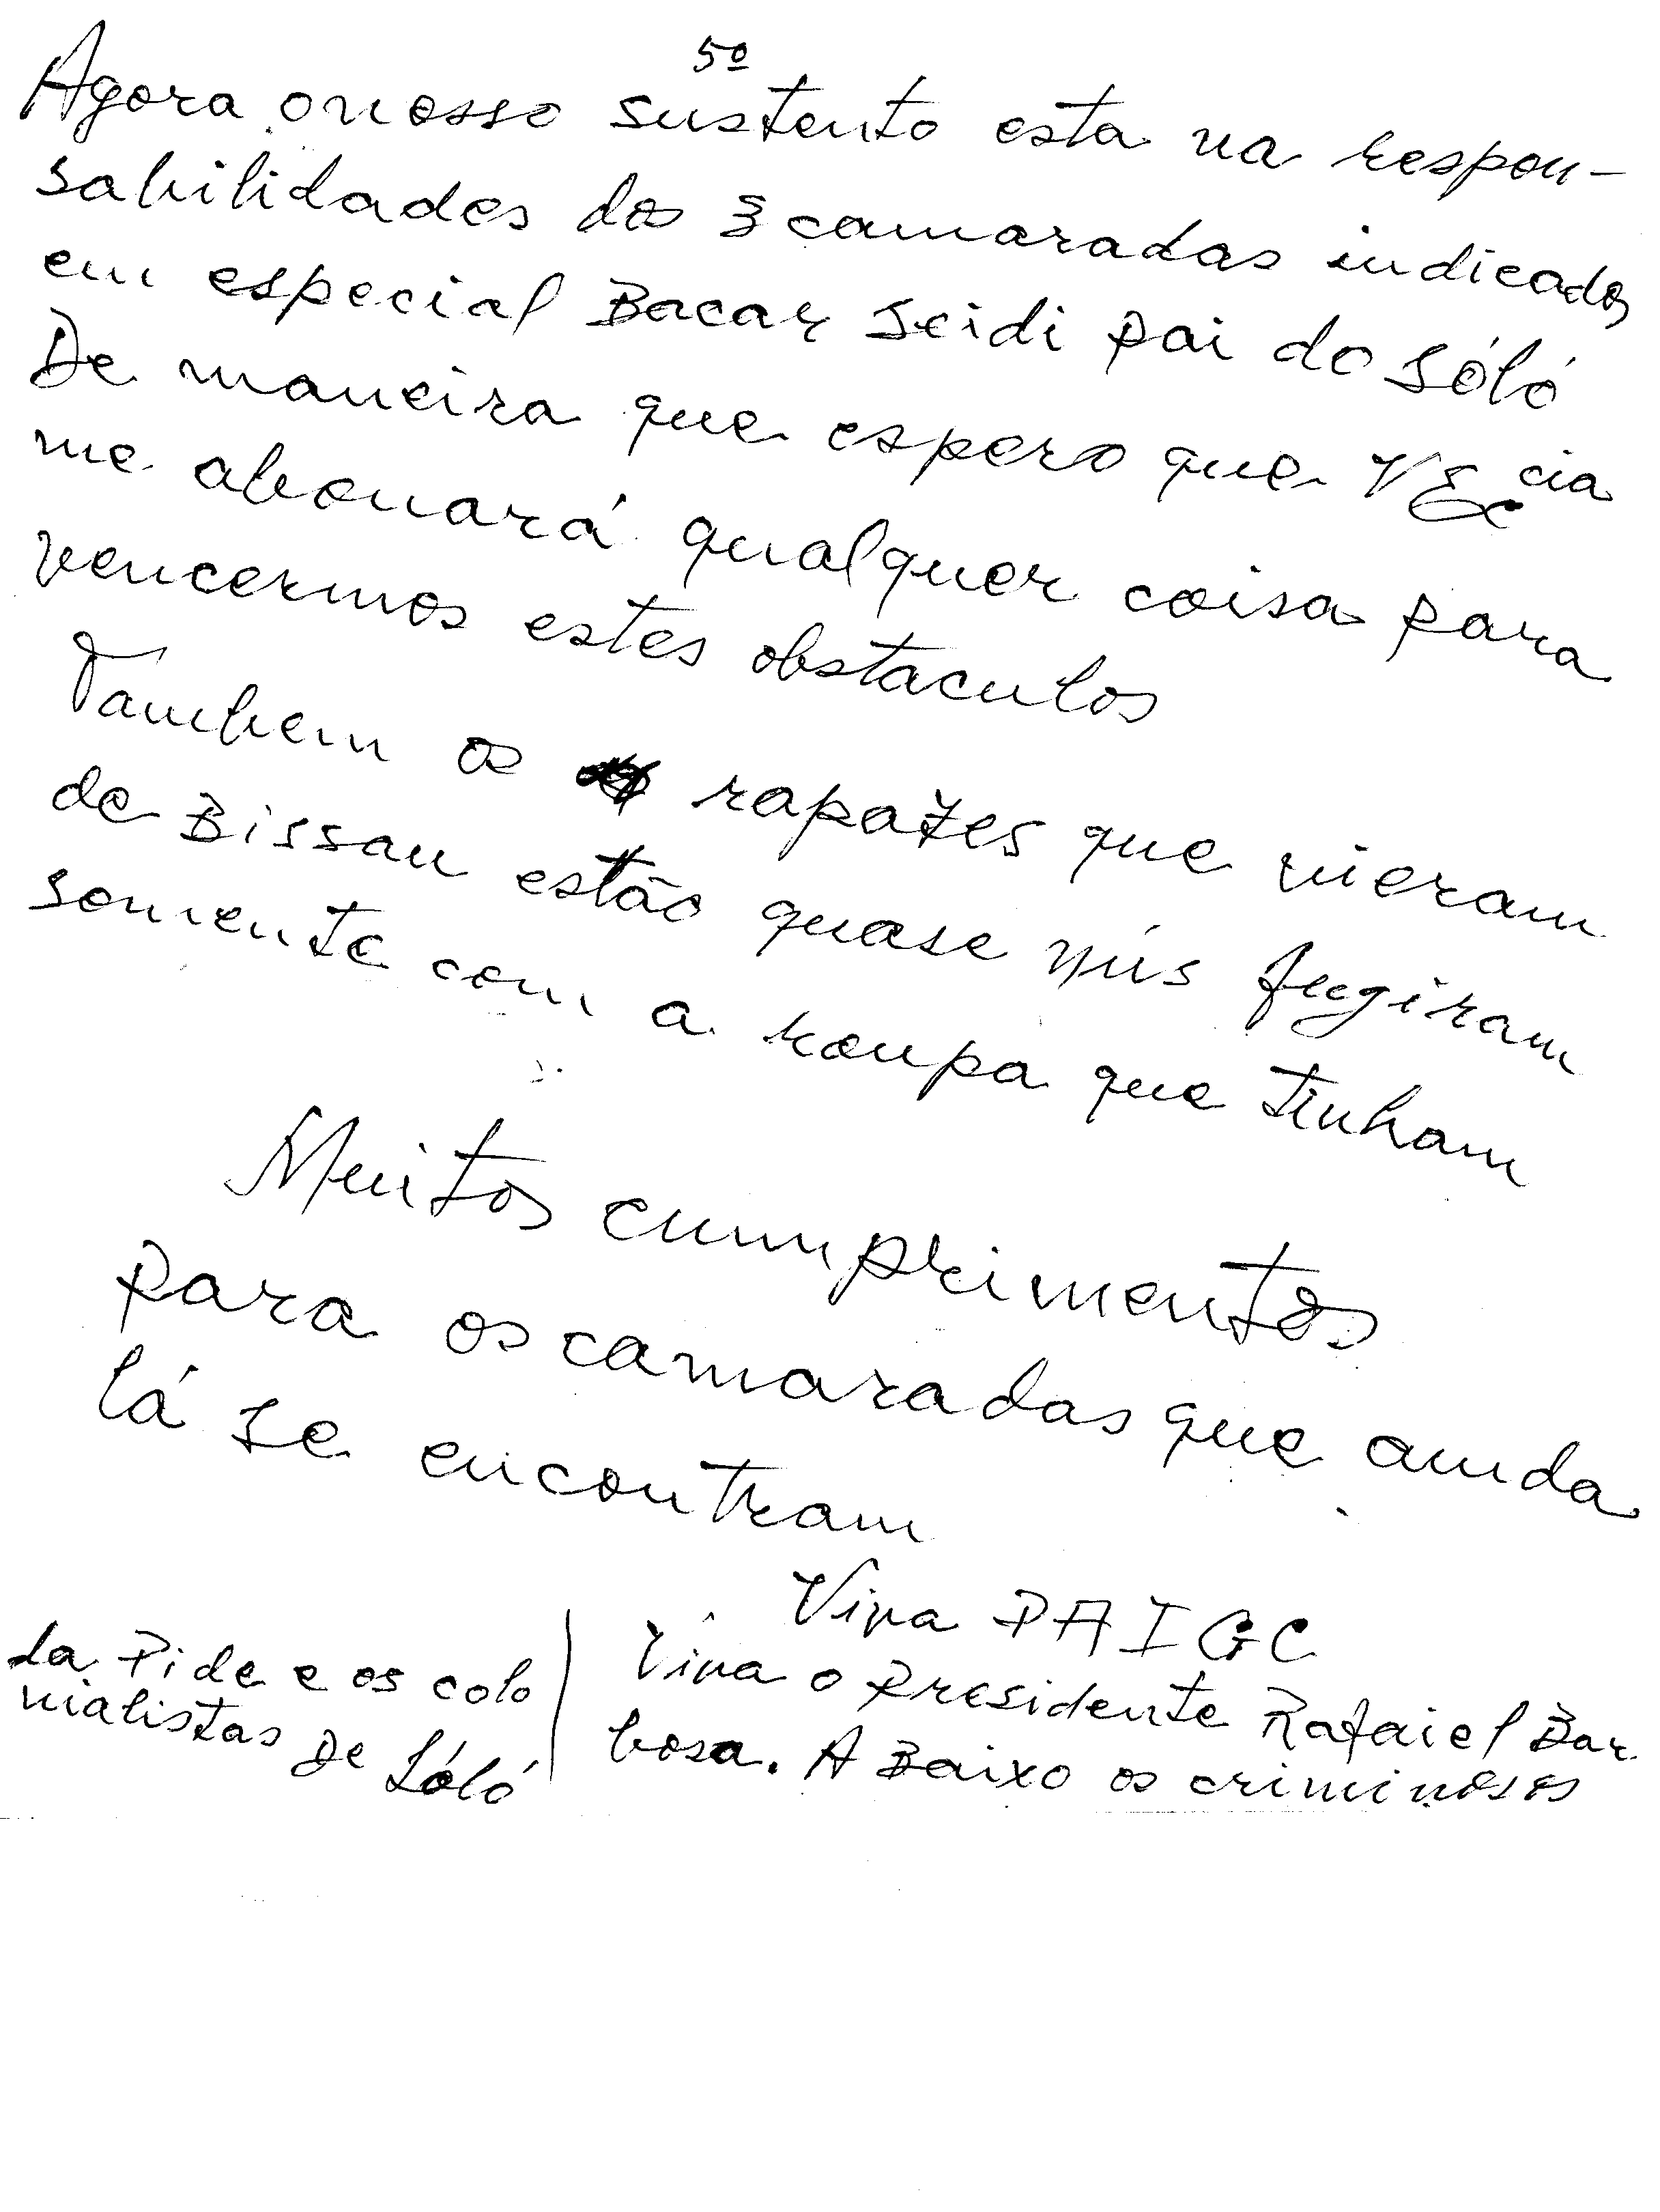 5º
Agora o nosso sustento esta na respon-
sabilidades dos 3 camaradas indicados
em especial Bacar Seidi pai do Sóló
De maneira que espero que VExcia
me abonará qualquer coisa para
vencermos estes obstaculos
Tambem os rapazes que vieram
de Bissau estão quase nús fugiram
somente com a roupa que tinham
Muitos cumprimentos
para os camaradas que ainda
lá se encontram
Viva PAIGC
Viva o presidente Rafaiel Bar
bosa. A Baixo os criminosos
da Pide e os colo
nialistas
De Lóló